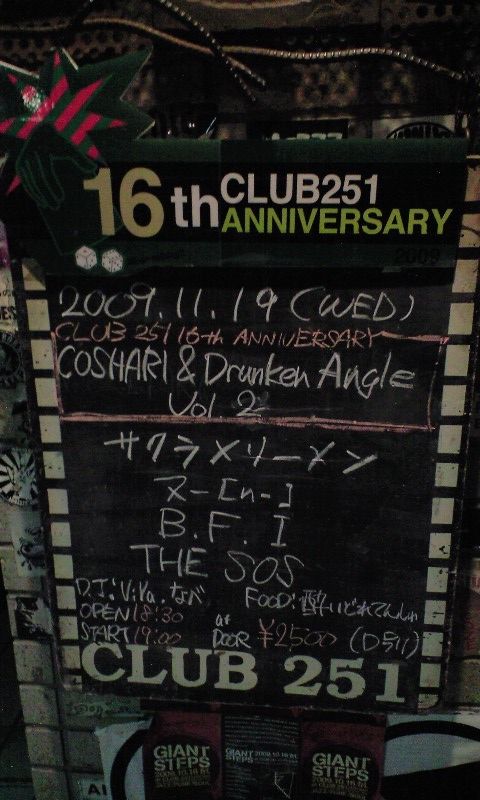 16th CLUB251
ANNIVERSARY
2009
2009.11.19 (WED)
CLUB 251 16th ANNIVERSARY
COSHARI & Drunken Angle
Vol. 2
サクラメリーメン
ヌ-[n-]
B.F.I
THE SOS
D.J:ViVa.なべ
FOOD:酔いどれてんし
OPEN 18:30
START 19:00
at DOOR ¥2500 (D別)
CLUB 251
GIANT STEPS
GIANT STEPS
GIANT STEPS